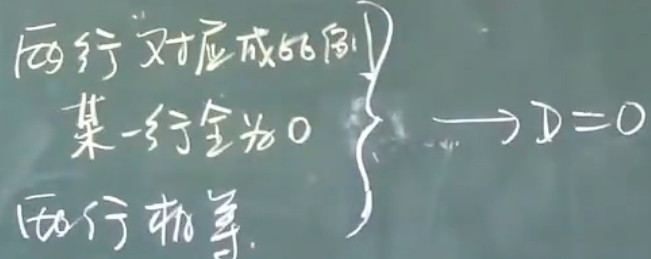 两行对应成比例
某一行全为0
两行相等.
} → D=0